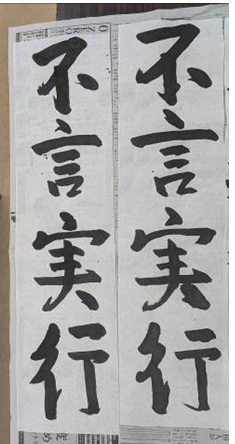 不言実行
不言実行